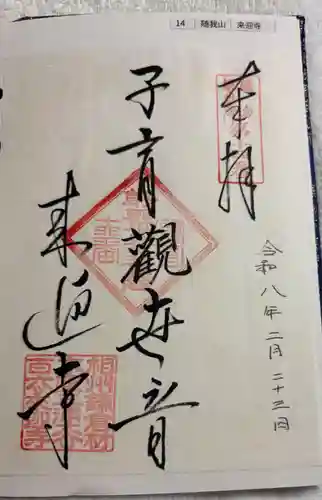 14 随我山 来迎寺
奉拝
子育觀世音
来迎寺
令和八年二月二十三日